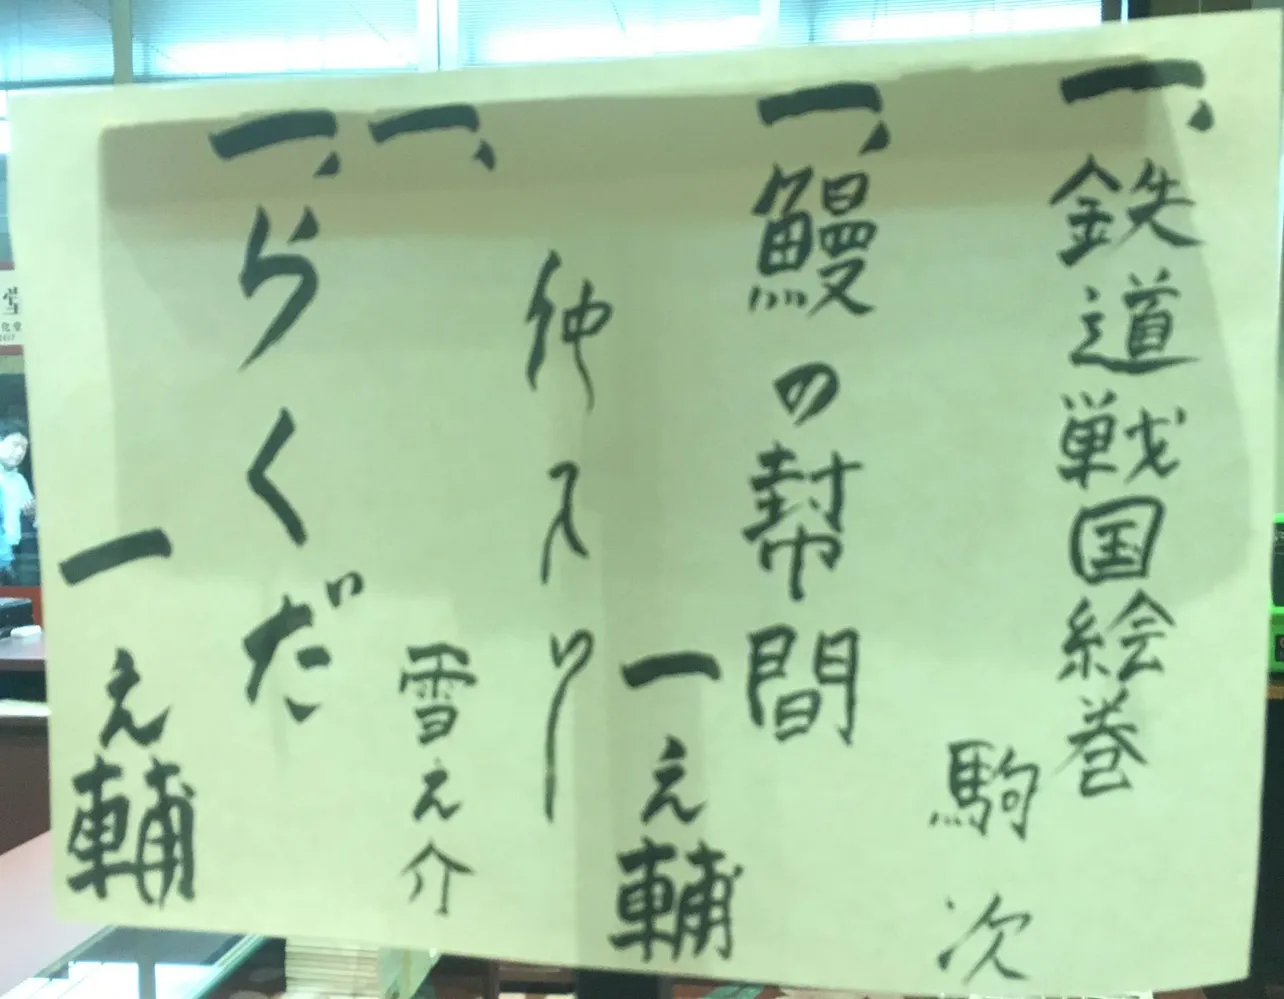 一、鉄道戦国絵巻
駒次
一、鰻の幇間
一之輔
仲入り
一、
雪之介
一、らくだ
一之輔
堂